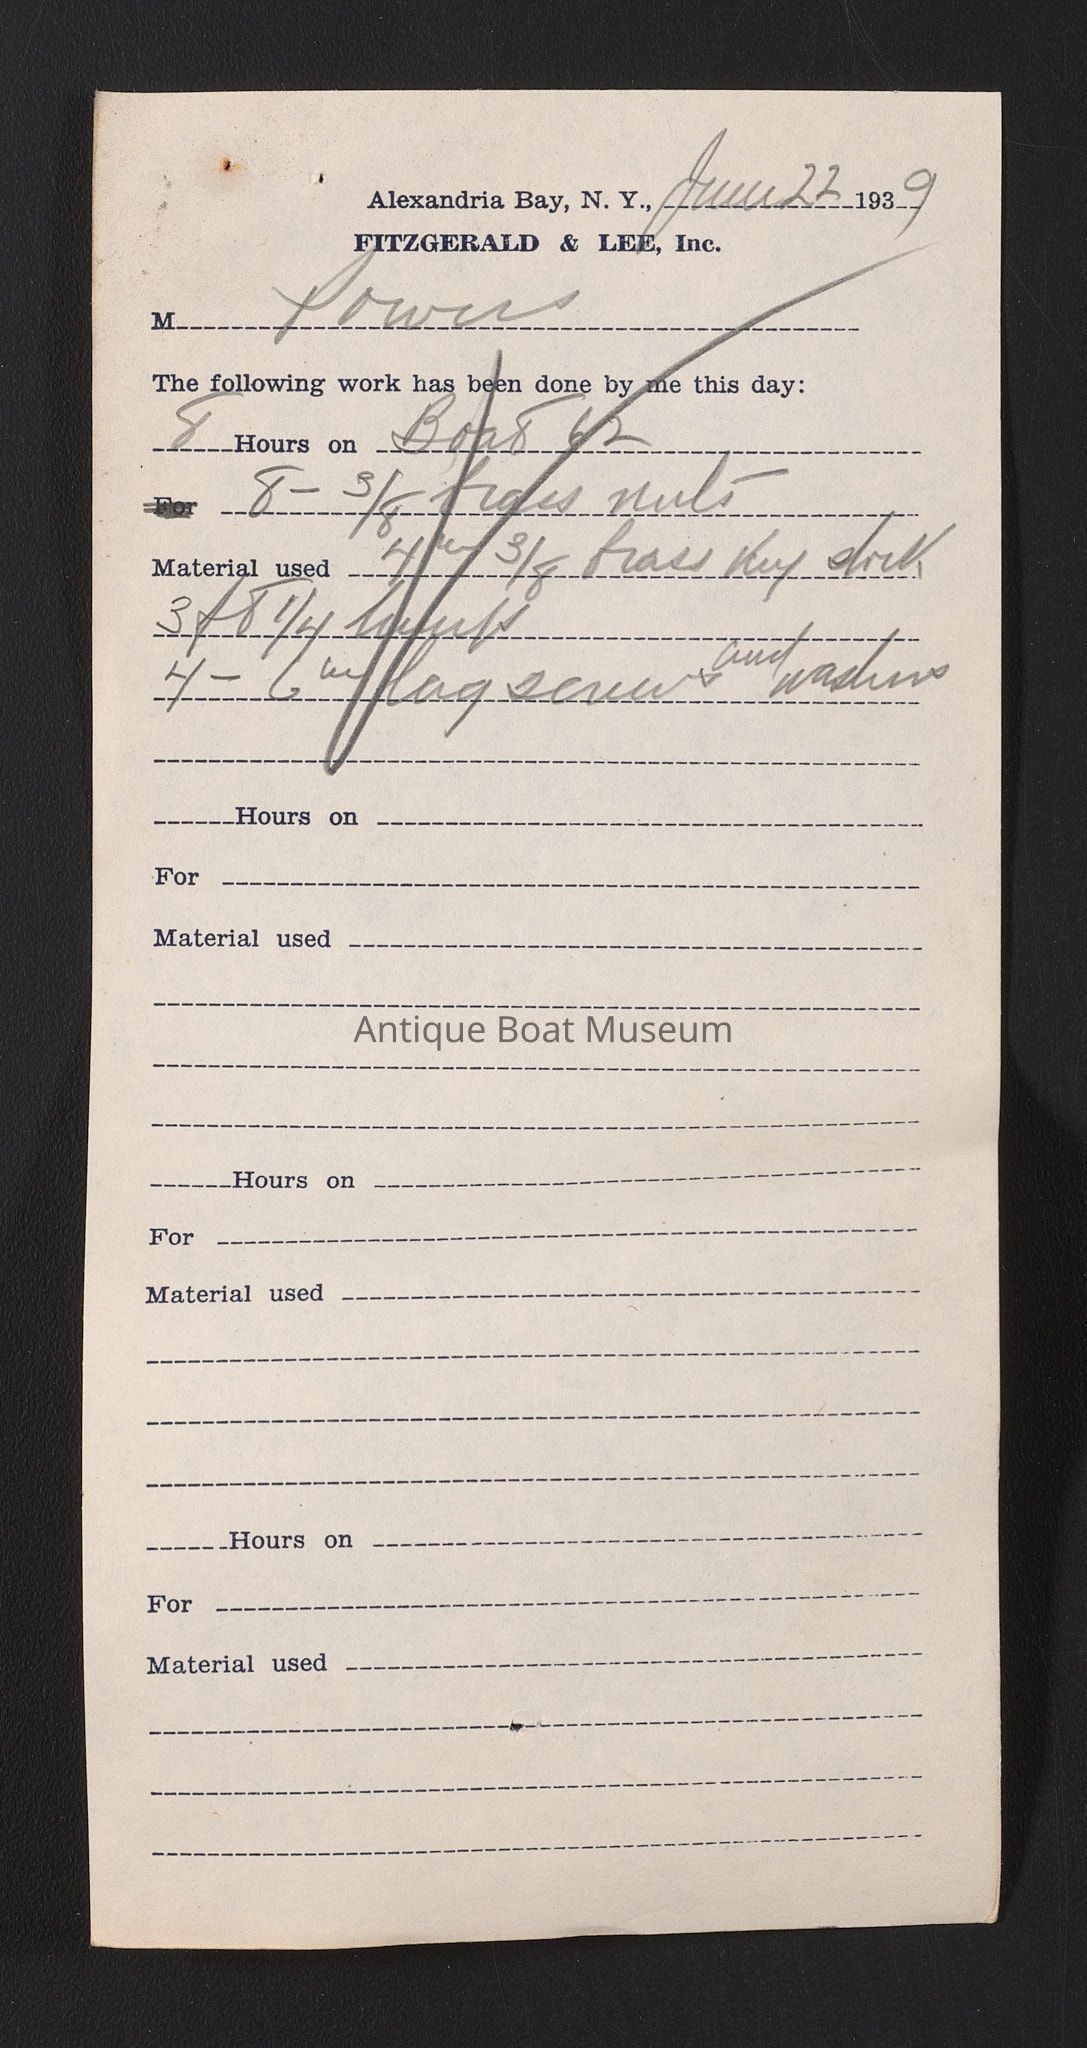 Alexandria Bay, N. Y., June 22 1939
FITZGERALD & LEE, Inc.
M Powers
The following work has been done by me this day:
8 Hours on Boat 62
For 8 - 3/8 brass nuts
Material used 4 in 3/8 brass key stock
3 1/4
4 - 6 in lag screws and washers
Hours on
For
Material used
Antique Boat Museum
Hours on
For
Material used
Hours on
For
Material used